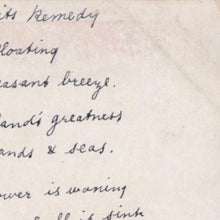 its Remedy
floating
easant breeze.
land's greatness
ands & seas.
ower is waning
it sink